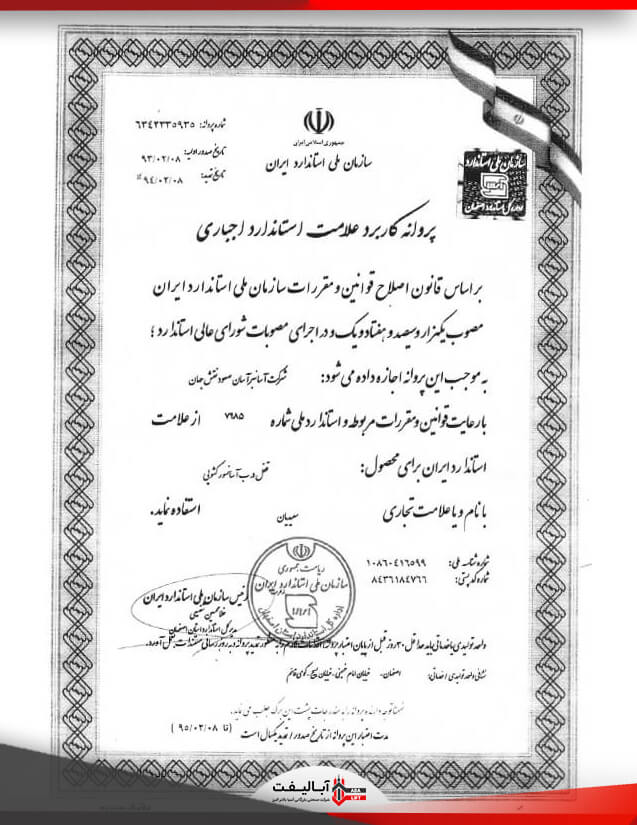 شماره پروانه: ۶۳۴۲۳۳۵۹۳۵
تاریخ صدور اولیه: ۹۳/۰۲/۰۸
تاریخ تمدید: ۹۴/۰۲/۰۸
جمهوری اسلامی ایران
سازمان ملی استاندارد ایران
سازمان ملی استاندارد
اداره کل استاندارد اصفهان
پروانه کاربرد علامت استاندارد اجباری
بر اساس قانون اصلاح قوانین و مقررات سازمان ملی استاندارد ایران
مصوب یکهزار و سیصد و هفتاد و یک و در اجرای مصوبات شورای عالی استاندارد ؛
به موجب این پروانه اجازه داده می شود: شرکت آسانبر آسان صعود نقش جهان
با رعایت قوانین و مقررات مربوطه و استاندارد ملی شماره ۷۶۸۵ از علامت
استاندارد ایران برای محصول: قفل درب آسانسور کشویی
با نام و یا علامت تجاری سیبان استفاده نماید.
شماره شناسه ملی: ۱۰۸۶۰۴۱۶۵۹۹
شماره کد پستی: ۸۴۳۶۱۸۴۷۶۶
ریاست جمهوری
سازمان ملی استاندارد ایران
اداره کل استاندارد استان اصفهان
رئیس سازمان ملی استاندارد ایران
غلامحسین شفیعی
مدیر کل استاندارد استان اصفهان
واحد تولیدی یا خدماتی باید حداقل ۳۰ روز قبل از پایان اعتبار پروانه اقدامات لازم را به منظور تمدید پروانه و به روز رسانی مستندات به عمل آورد.
نشانی واحد تولیدی / خدماتی: اصفهان- خیابان امام خمینی- خیابان بسیج- کوی قائم
ضمناً توجه دارنده پروانه را به مندرجات پشت این برگ جلب می نماید.
مدت اعتبار این پروانه از تاریخ صدور / تمدید یکسال است (تا ۹۵/۰۲/۰۸)
آبالیفت
ABA LIFT